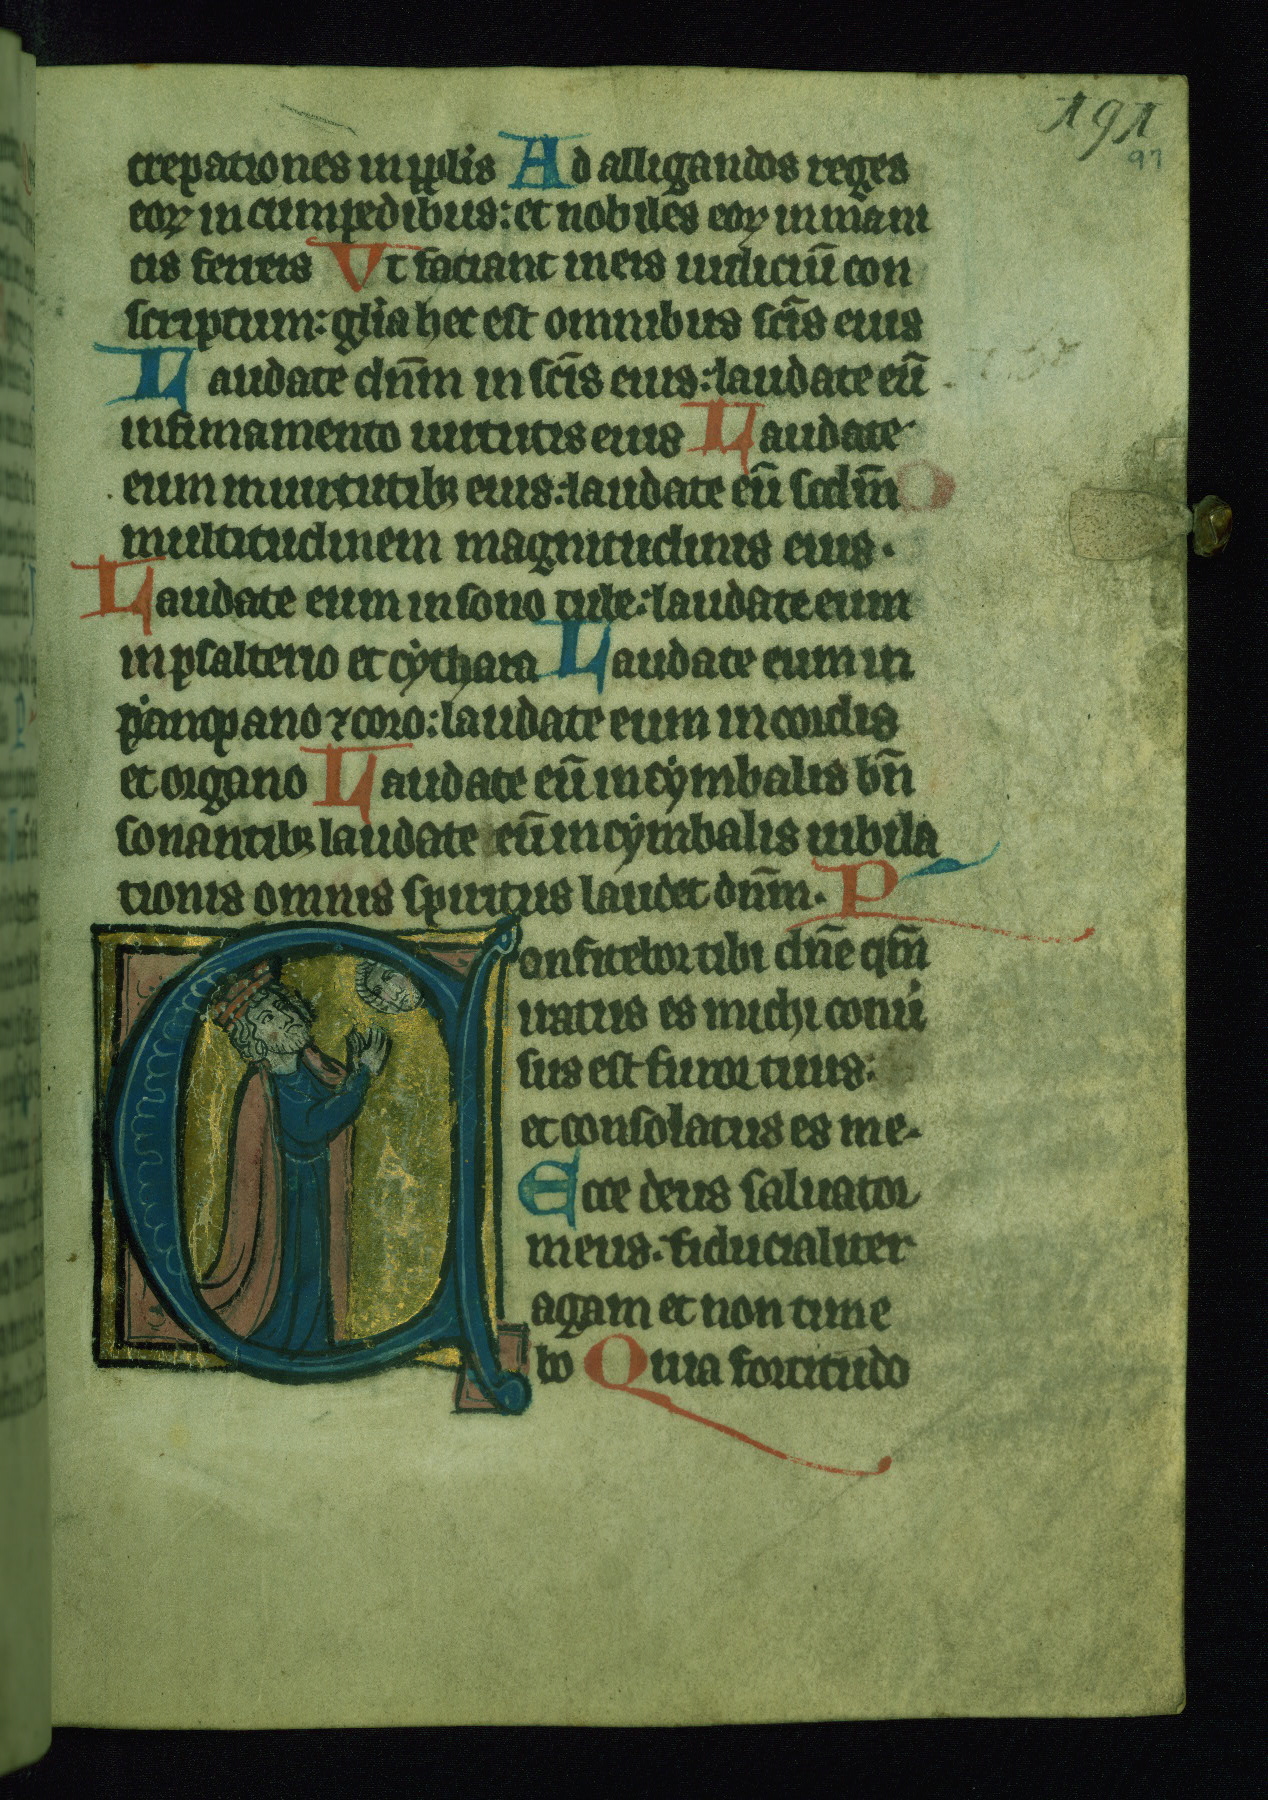 191
97
crepationes in pplis Ad alligandos reges
eoꝝ in cumpedibus: et nobiles eoꝝ in mani
cis ferreis Vt faciant in eis iudiciū con
scriptum: glia hec est omnibus scīs eius
Laudate dn̄m in scīs eius: laudate eū
in firmamento uirtutis eius Laudate
eum in uirtutibꝫ eius: laudate eū scdm̄
multitudinem magnitudinis eius.
Laudate eum in sono tube: laudate eum
in psalterio et cythara Laudate eum in
tympano ⁊ coro: laudate eum in cordis
et organo Laudate eū in cymbalis bn̄
sonantibꝫ laudate eū in cymbalis iubila
tionis omnis spiritus laudet dn̄m. P
Confitebor tibi dn̄e qm̄
iratus es michi conu̾
sus est furor tuus:
et consolatus es me.
Ecce deus saluator
meus. fiducialiter
agam et non time
bo Quia fortitudo